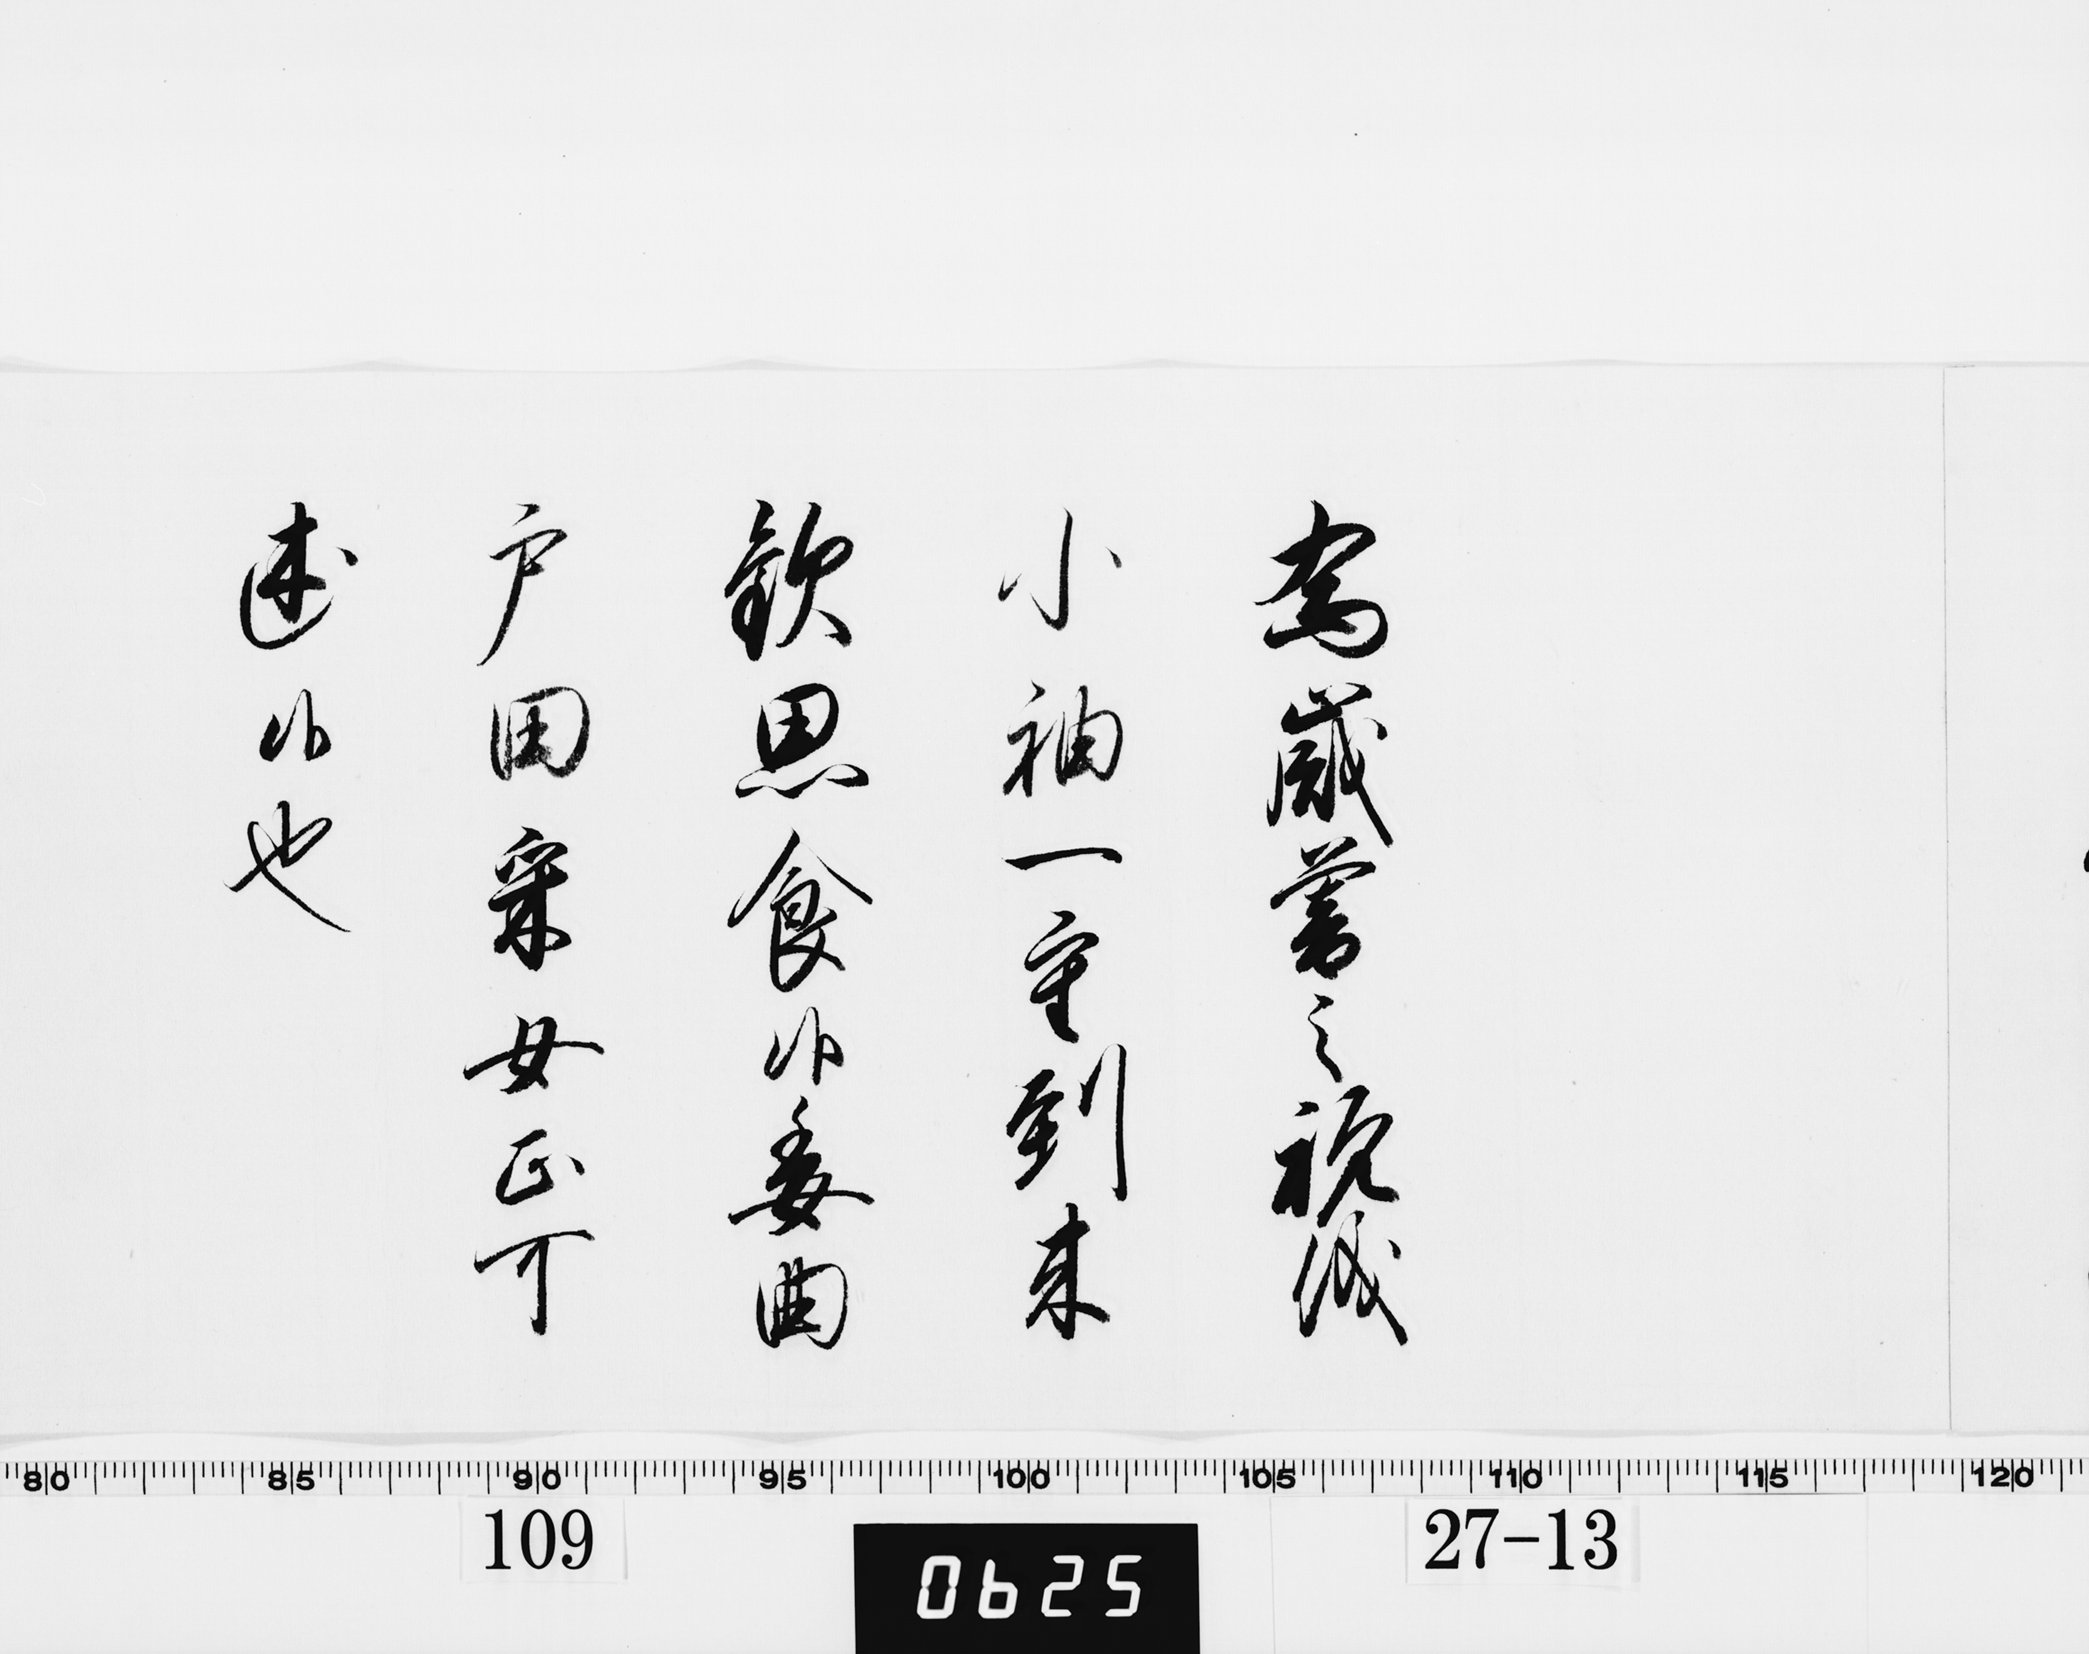 為歳暮之祝儀
小袖一重到来
歓思食候委曲
戸田采女正可
述候也
80 85 90 95 100 105 110 115 120
109
0625
27-13